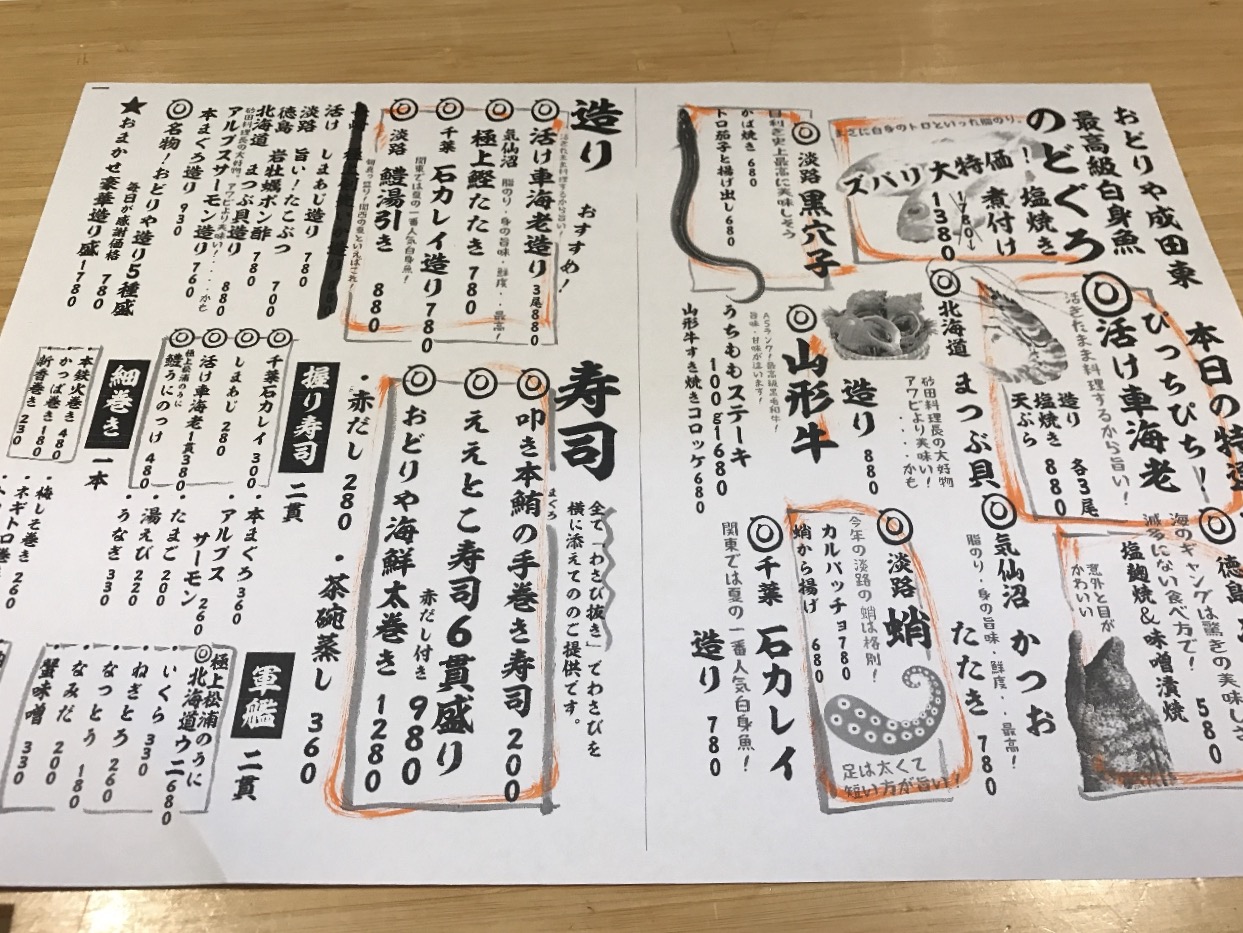 おどりや成田東
最高級白身魚
のどぐろ
！塩焼き
煮付け
ズバリ大特価
1780↓
1380
まさに白身のトロといった脂のり。
淡路 黒穴子
目利き史上最高に美味しそう
かば焼き 680
トロ茄子と揚げ出し680
本日の特選
ぴっちぴち！
活け車海老
活きたまま料理するから旨い！
造り
塩焼き
天ぷら
各3尾
880
北海道 まつぶ貝
砂田料理長の大好物
アワビより美味い！
・・・・かも
造り 880
山形牛
A5ランク！最高級黒毛和牛！
旨味・甘味が違います！
うちももステーキ
100g1680
山形牛すき焼きコロッケ680
徳島
海のギャングは驚きの美味しさ
減るにない食べ方で！
塩麹焼&味噌漬焼
580
意外と目が
かわいい
気仙沼 かつお
脂のり・身の旨味・鮮度・・最高！
たたき 780
淡路 蛸
今年の淡路の蛸は格別！
カルパッチョ780
蛸から揚げ 680
足は太くて
短い方が旨い！
千葉 石カレイ
関東では夏の一番人気白身魚！
造り 780
造り おすすめ！
活け車海老造り 3尾880
活きたまま料理するから旨い！
気仙沼 脂のり・身の旨味・鮮度・・最高！
極上鰹たたき 780
千葉 石カレイ造り 780
関東では夏の一番人気白身魚！
淡路 鱧湯引き 880
旬真っ盛り！関西の夏といえばこれ！
活け しまあじ造り 780
淡路 旨い！たこぶつ 780
徳島 岩牡蠣ポン酢 700
北海道 まつぶ貝造り 880
砂田料理長の大好物 アワビより美味い！・・・・かも
アルプスサーモン造り 760
本まぐろ造り 930
名物！おどりや造り5種盛
毎日が感謝価格 780
★おまかせ豪華造り盛 1780
寿司
全て「わさび抜き」でわさびを
横に添えてのご提供です。
叩き本鮪の手巻き寿司 200
まぐろ
ええとこ寿司6貫盛り
赤だし付き 980
おどりや海鮮太巻き 1280
・赤だし 280 ・茶碗蒸し 360
握り寿司 二貫
千葉石カレイ 300
しまあじ 280
活け車海老1貫380
極上松浦のうに
鱧うにのっけ 480
・本まぐろ360
・アルプス
サーモン 260
・たまご 200
・湯えび 220
・うなぎ 330
細巻き 一本
本鉄火巻き 480
かっぱ巻き 180
新香巻き 230
・梅しそ巻き 260
・ネギトロ巻
軍艦 二貫
極上松浦のうに
北海道ウニ680
・いくら 330
・ねぎとろ 260
・なっとう 180
・なみだ 200
・蟹味噌 330